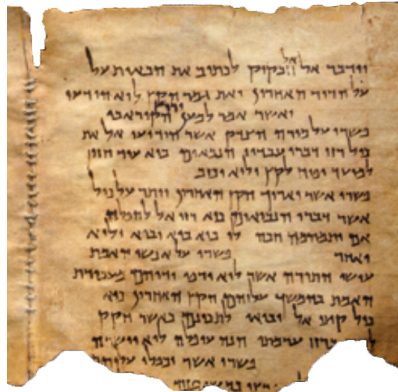 וידבר אל אל חבקוק לכתוב את הבאות על
על הדור האחרון ואת גמר הקץ לוא הודעו
ואשר אמר למען ירוץ הקורא בו
פשרו על מורה הצדק אשר הודיעו אל את
כול רזי דברי עבדיו הנבאים כיא עוד חזון
למועד יפח לקץ ולוא יכזב
פשרו אשר יארוך הקץ האחרון ויתר על כול
אשר דברו הנביאים כיא רזי אל להפלה
אם יתמהמה חכה לו כיא בוא יבוא ולוא
יאחר פשרו על אנשי האמת
עושי התורה אשר לוא ירפו ידיהם מעבודת
האמת בהמשך עליהם הקץ האחרון כיא
כול קיצי אל יבואו לתכונם כאשר חקק
ברזי ערמתו הנה עופלה לוא יושרה
פשרו אשר יכפלו עליהם